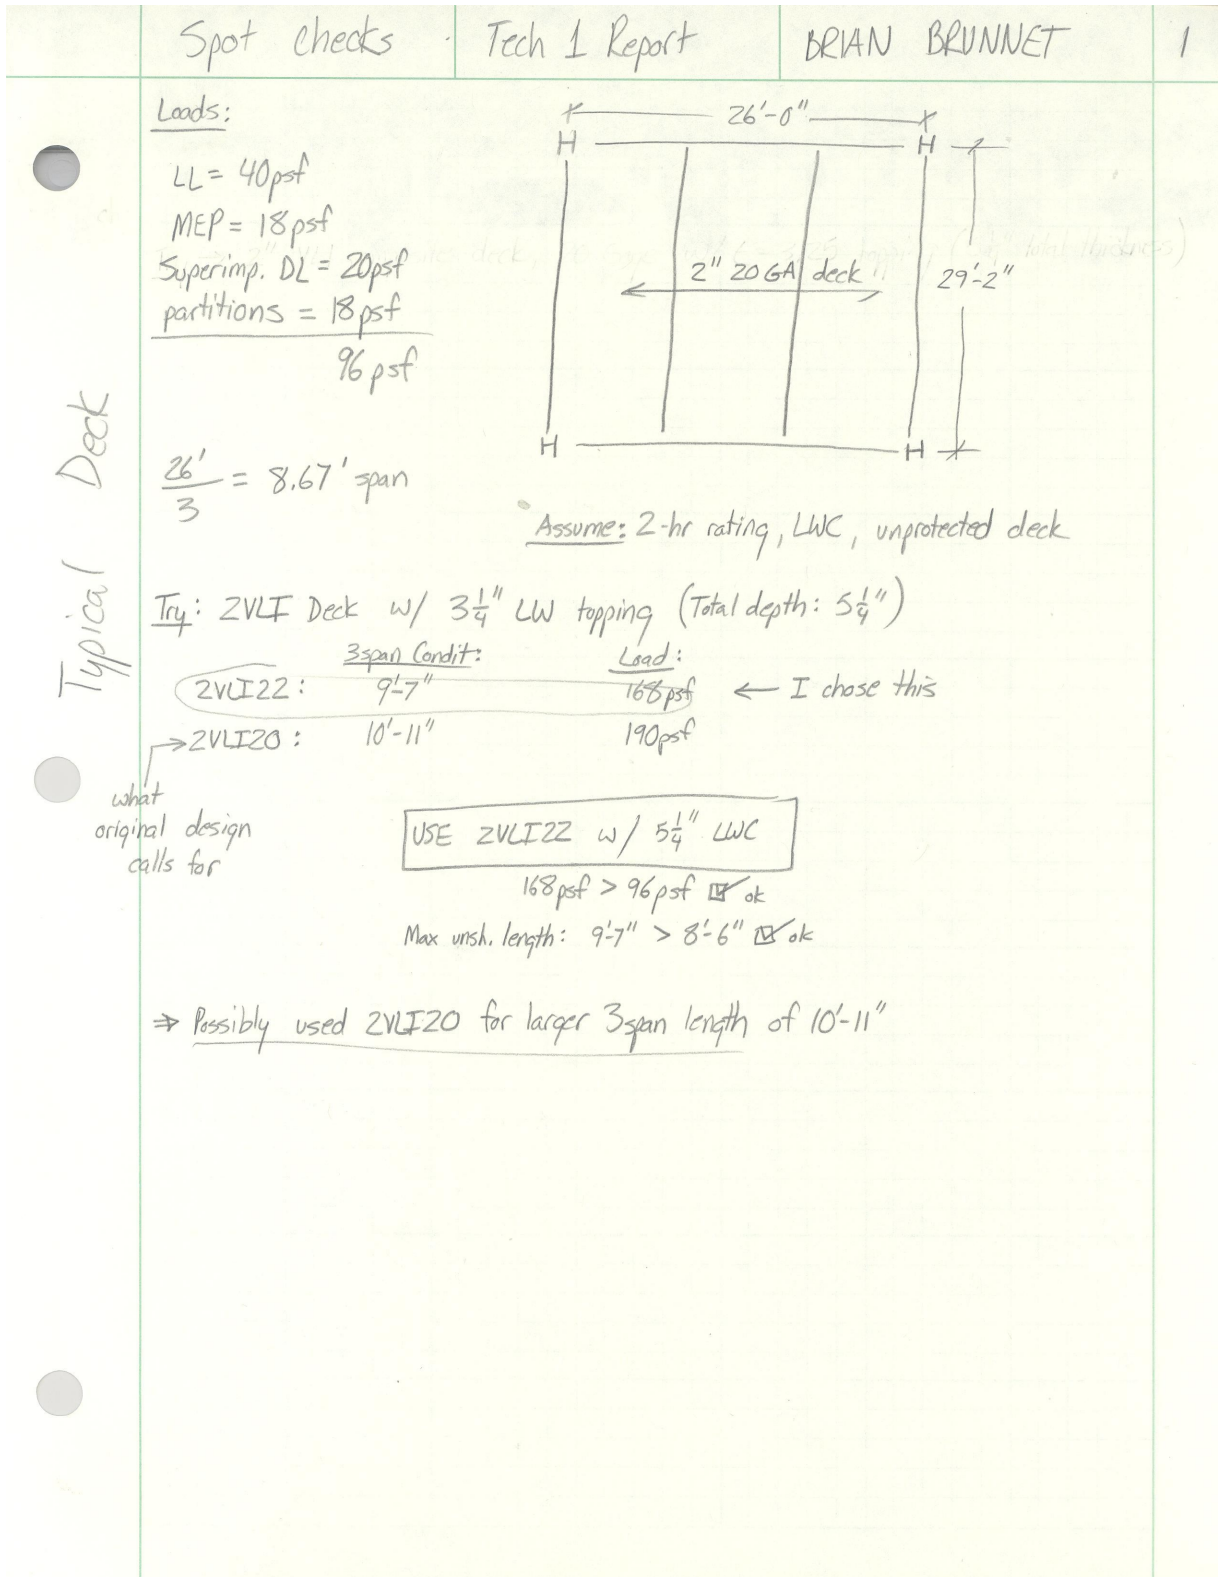 Spot Checks
Tech 1 Report
BRIAN BRUNNET
1
Typical Deck
Loads:
LL = 40psf
MEP = 18psf
Superimp. DL = 20psf
partitions = 18psf
96psf
26'-0"
H H
2" 20GA deck
29'-2"
H H
26'/3 = 8.67' span
Assume: 2-hr rating, LWC, unprotected deck
Try: 2VLI Deck w/ 3 1/4" LW topping (Total depth: 5 1/4")
3span Condit: Load:
2VLI22: 9'-7" 168psf ← I chose this
→2VLI20: 10'-11" 190psf
what
original design
calls for
USE 2VLI22 w/ 5 1/4" LWC
168psf > 96psf ☑ ok
Max unsh. length: 9'-7" > 8'-6" ☑ ok
⇒ Possibly used 2VLI20 for larger 3span length of 10'-11"